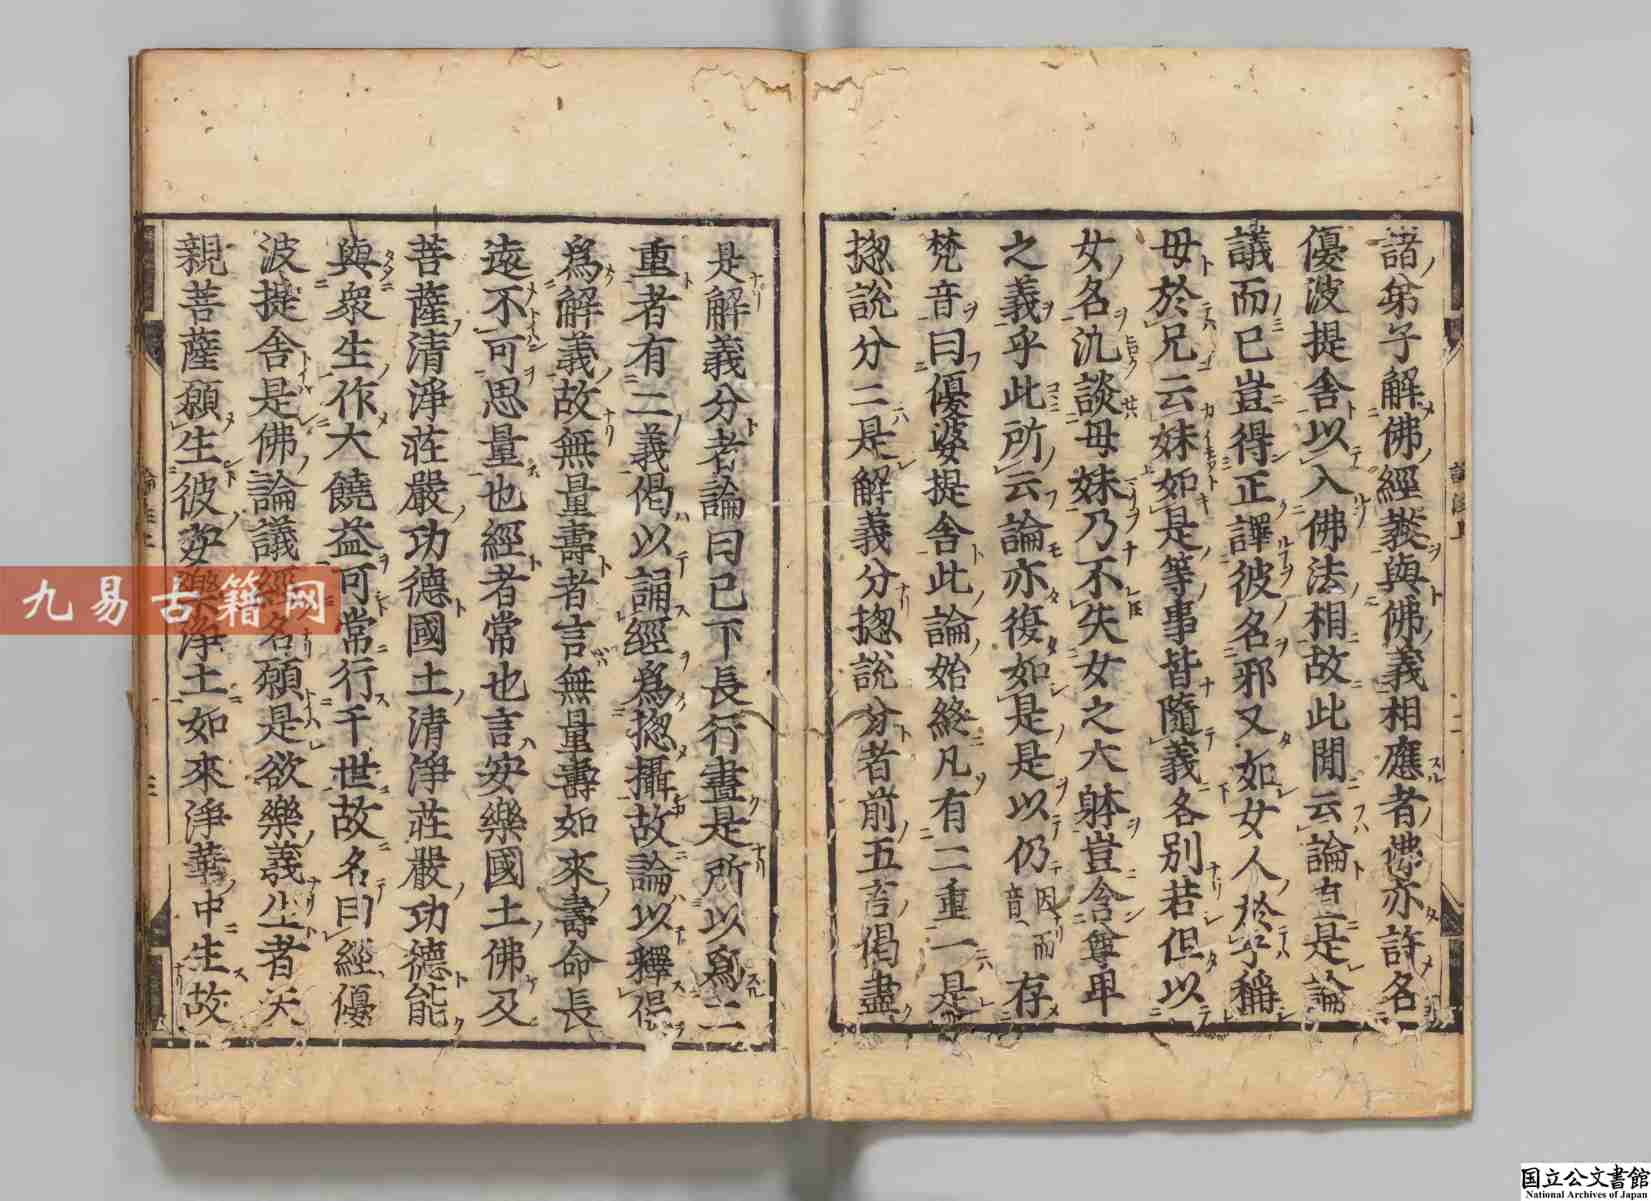 諸弟子解佛經教與佛義相應者佛亦許名
優波提舍以入佛法相故此間云論直是論
議而已豈得正譯彼名邪又如女人於子稱
母於兄云妹如是等事皆隨義各別若但以
女名汎談母妹乃不失女之大躰豈含尊卑
之義乎此所云論亦復如是是以仍因而音存
梵音曰優婆提舍此論始終凡有二重一是
揔說分二是解義分揔說分者前五言偈盡
是解義分者論曰已下長行盡是所以爲二
重者有二義偈以誦經爲揔攝故論以釋偈
爲解義故無量壽者言無量壽如來壽命長
遠不可思量也經者常也言安樂國土佛及
菩薩清淨莊嚴功德國土清淨莊嚴功德能
與衆生作大饒益可常行千世故名曰經優
波提舍是佛論議經名願是欲樂義生者天
親菩薩願生彼安樂淨土如來淨華中生故
九易古籍网
国立公文書館
National Archives of Japan